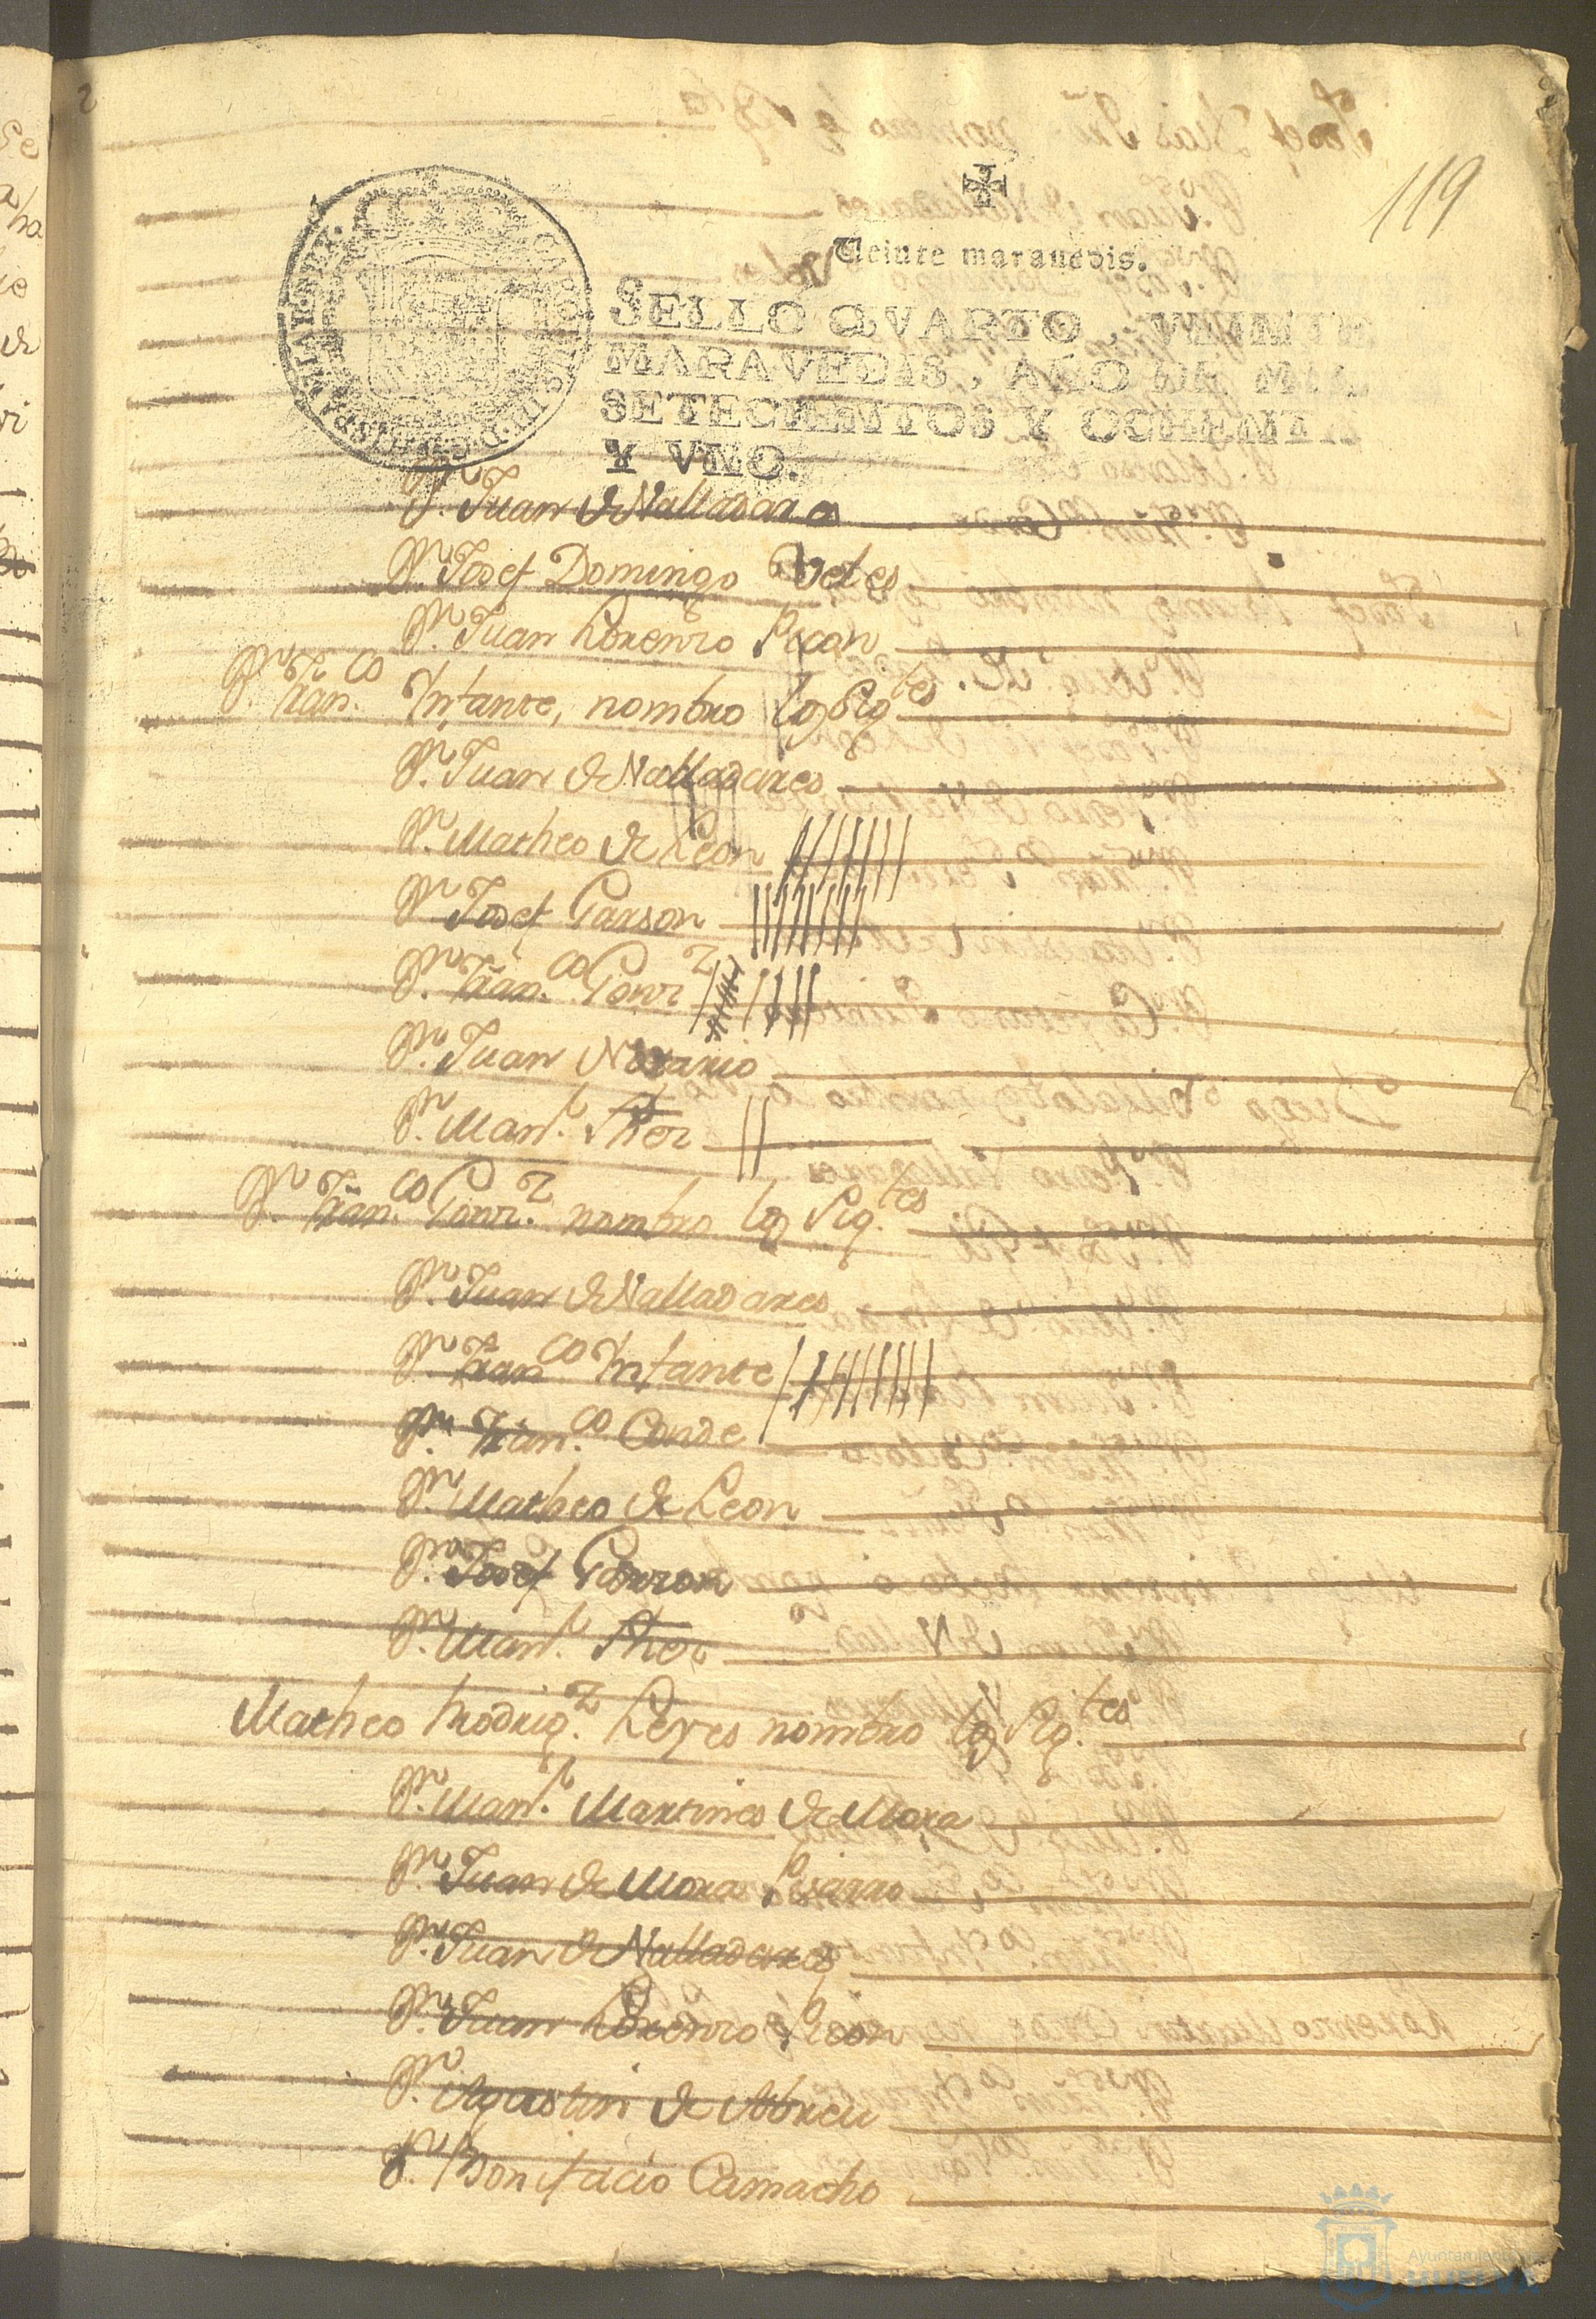 119
Veinte maravedis.
SELLO QVARTO, VEINTE
MARAVEDIS, AÑO DE MIL
SETECIENTOS Y OCHENTA
Y VNO.
Dn. Juan de Valladares
Dn. Josef Domingo Vetes
Dn. Juan Lorenzo Picon
Dn. Fran.co Infante, nombro los Sig.tes
Dn. Juan de Valladares
Dn. Matheo de Leon
Dn. Josef Garzon
Dn. Fran.co Gonz.z
Dn. Juan Nozario
Dn. Man.l
Dn. Fran.co Gonz.z nombro los Sig.tes
Dn. Juan de Valladares
Dn. Fran.co Infante
Dn. Fran.co Conde
Dn. Matheo de Leon
Dn. Josef Garzon
Dn. Man.l
Matheo Rodrig.z Reyes nombro los Sig.tes
Dn. Man.l Martines de Mora
Dn. Juan de Mora Pizarro
Dn. Juan de Valladares
Dn. Juan Lorenzo Picon
Dn. Agustin de Abreu
Dn. Bonifacio Camacho
Ayuntamiento de
HUELVA